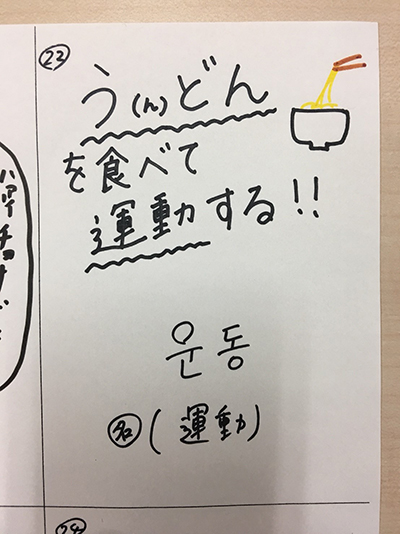 ㉓
う(ん)どん
を食べて
運動する!!
운동
㊔(運動)
㉔